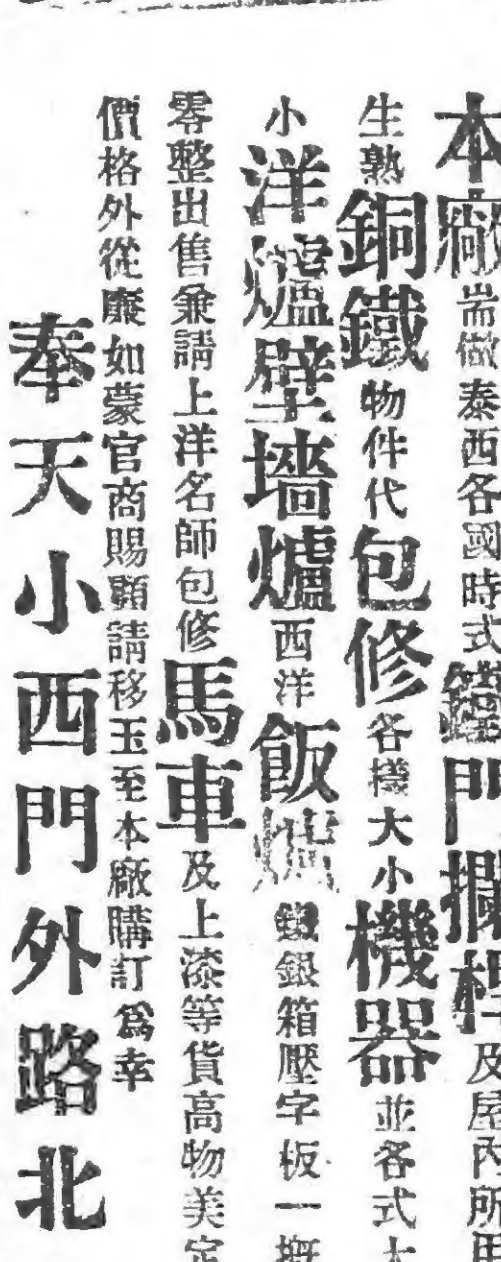 本廠耑做泰西各國時式鐵門攔杆及屋內所用
生熟銅鐵物件代包修各樣大小機器並各式大
小洋爐壁墻爐西洋飯爐銀箱壓字板一概
零整出售兼請上洋名師包修馬車及上漆等貨高物美定
價格外從廉如蒙官商賜顧請移玉至本廠購訂為幸
奉天小西門外路北